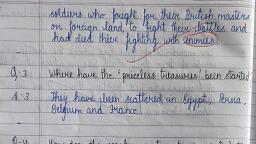 soldiers who fought for their British masters
on foreign land to fight their battles and
had died there fighting with enemies.
Q.3 Where have the "priceless treasures" been started
A.3 They have been scattered in Egypt, Persia,
Belgium and France.